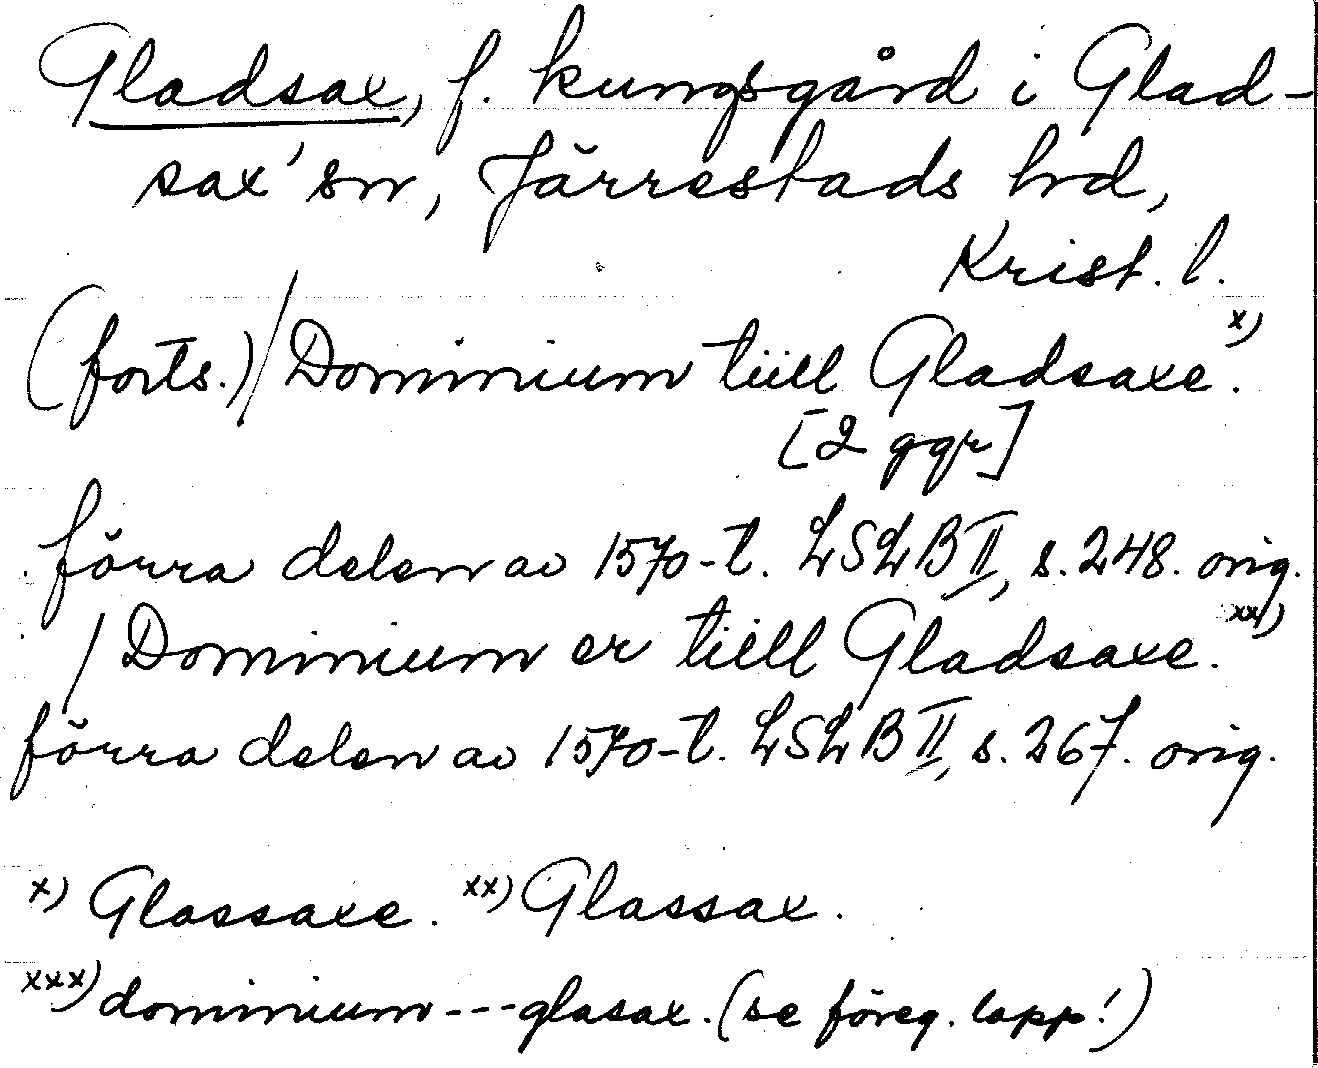 Gladsax, f. kungsgård i Glad-
sax' sn, Järrestads hd,
Krist. l.
(forts.) / Dominium tiill Gladsaxe.x)
[2 ggr]
förra delen av 1570-t. LSLB II, s. 248. orig.
/ Dominium er tiill Gladsaxe.xx)
förra delen av 1570-t. LSLB II, s. 267. orig.
x) Glassaxe. xx) Glassax.
xxx) dominium --- glasax. (se föreg. lapp!)